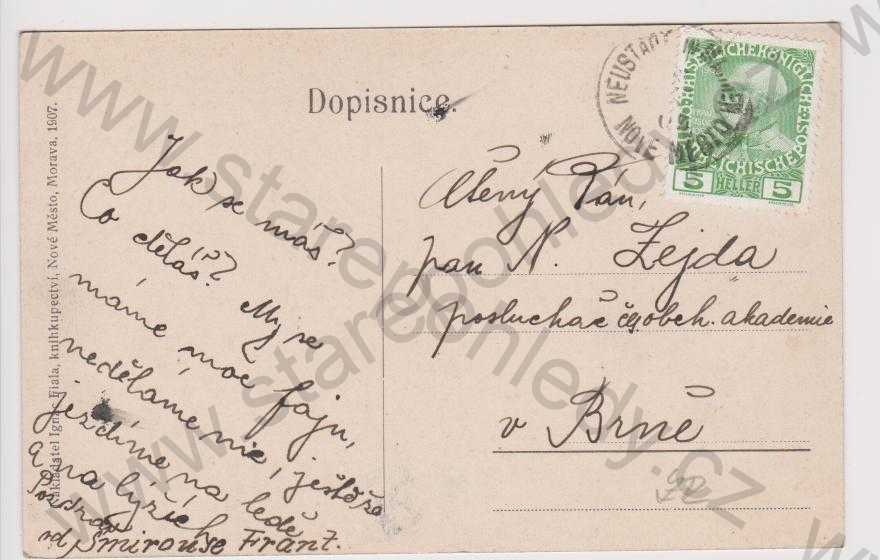 Dopisnice.
Nakladatel Ignác Fiala, knihkupectví, Nové Město, Morava. 1907.
NEUSTADTL IN MÄHREN
NOVÉ MĚSTO
5 HELLER 5
Jak se máš?
Co děláš? My se
máme moc fajn,
neděláme nic, ještěže
jezdíme na ledě
a na lyžích
Pozdrav
od Smirouse Frant.
Ctěný Pán,
pan N. Zejda
posluchač čes. obch. akademie
v Brně
www.starepohledy.cz